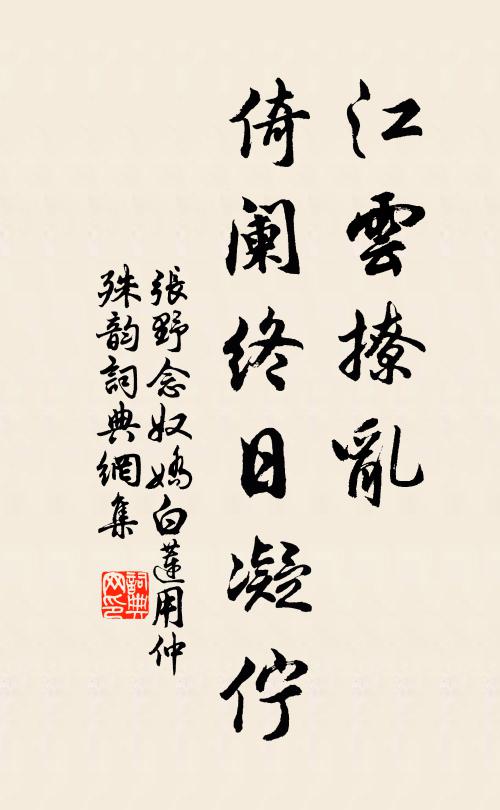 江雲撩亂
倚闌終日凝佇
張野念奴嬌白蓮用仲
殊韵詞典網集
詞典网印